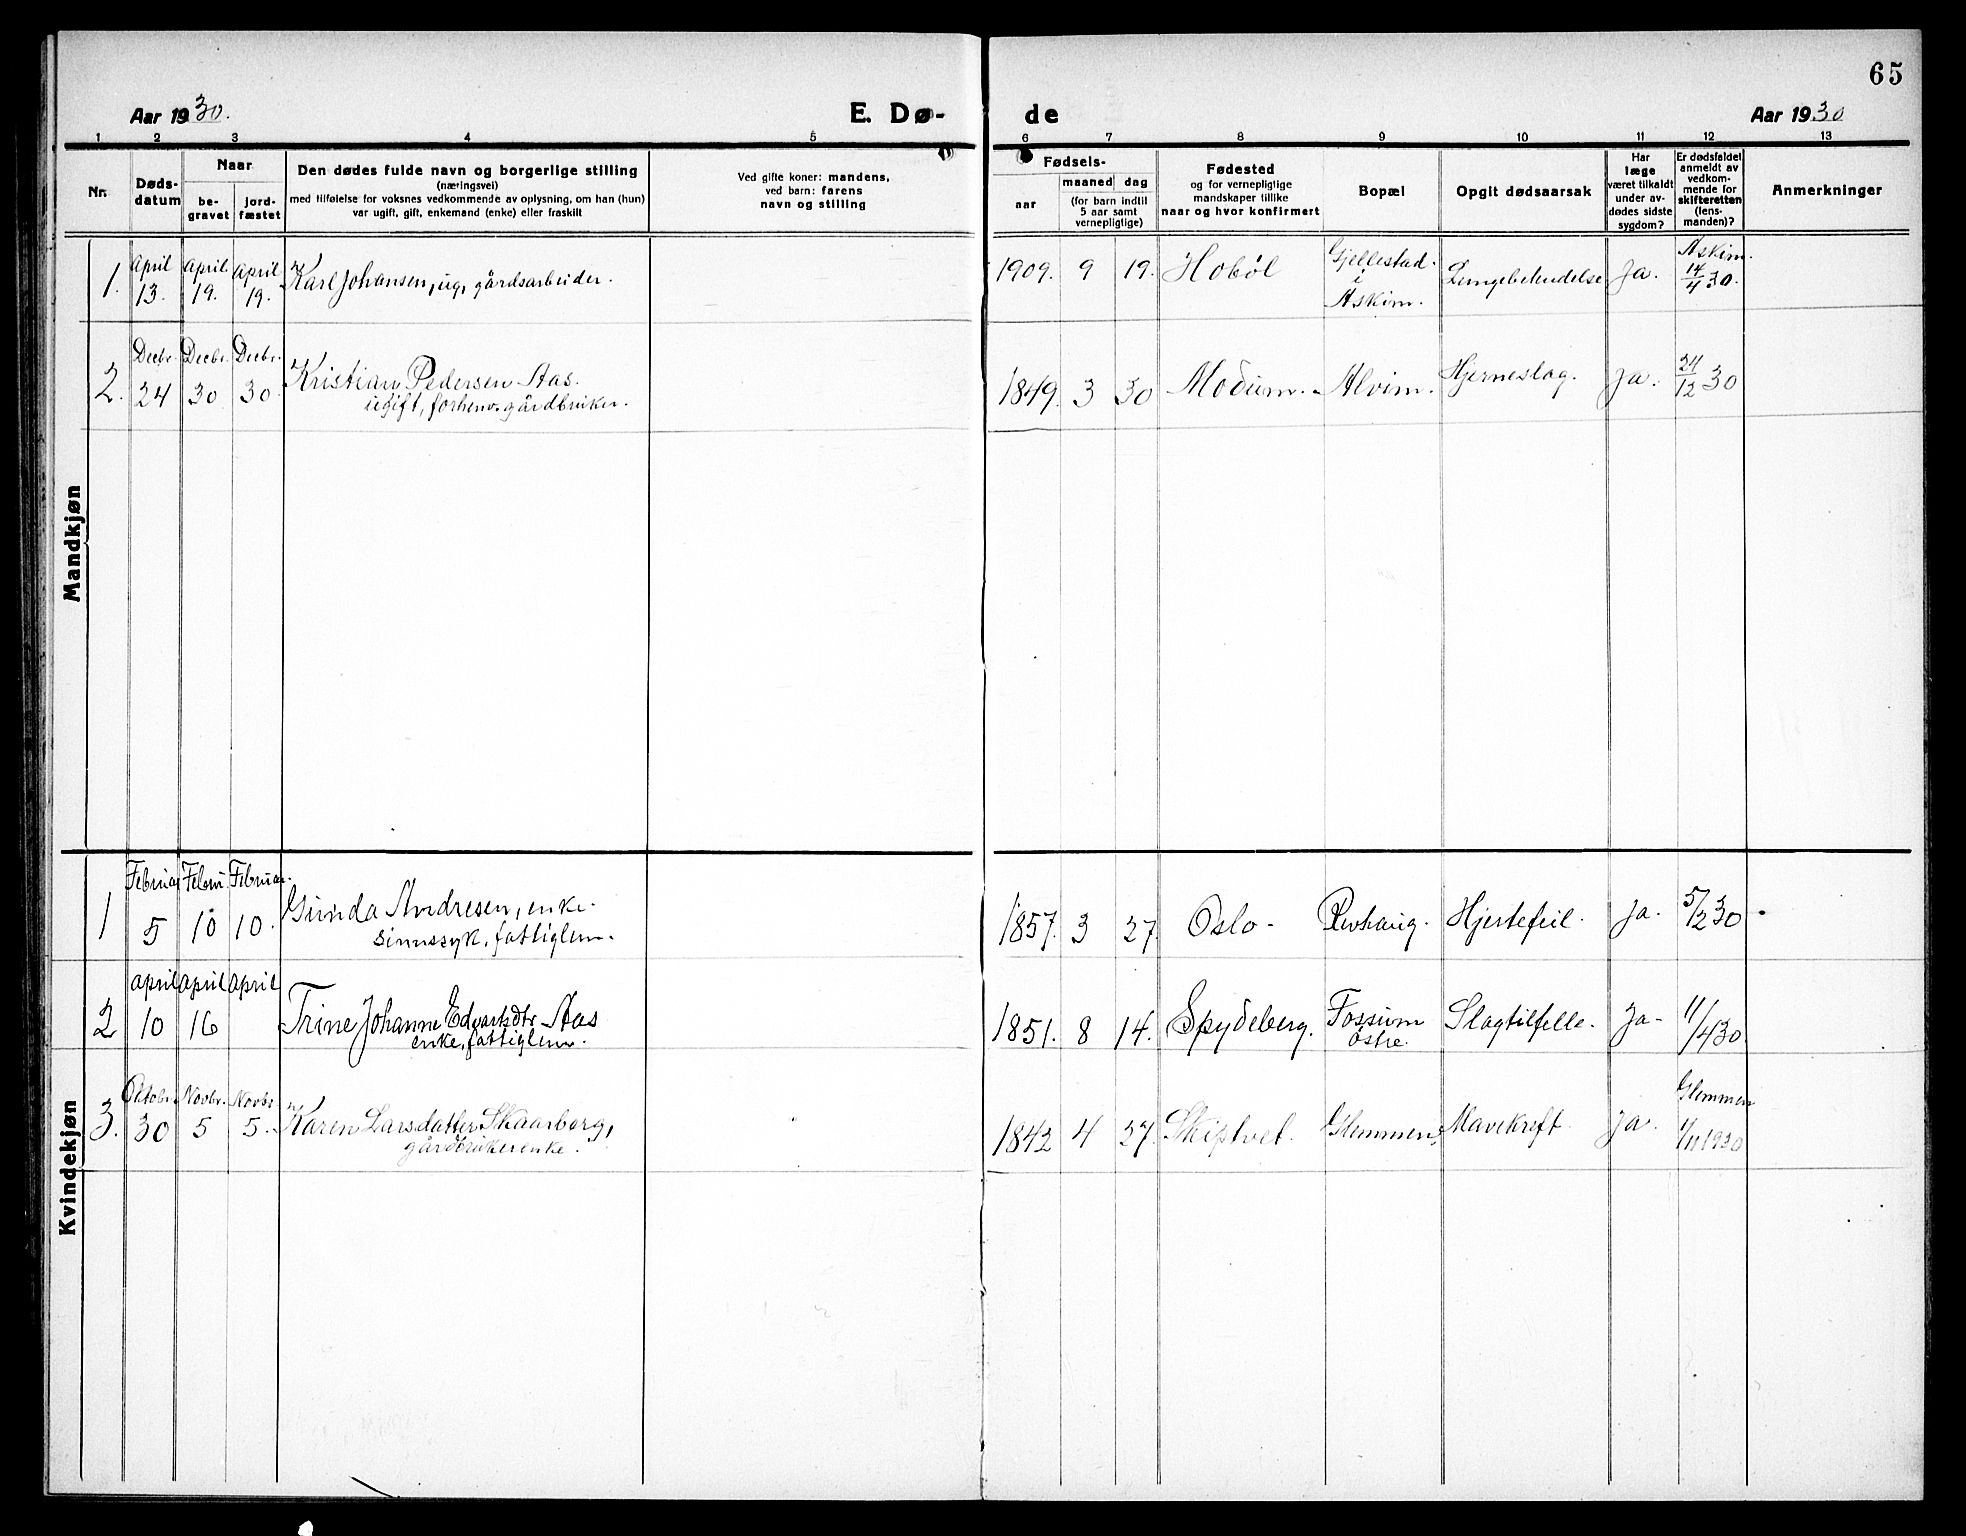 65
Aar 1930.
E. Dø-
de
Aar 1930
1 2 3 4 5 6 7 8 9 10 11 12 13
Nr.
Døds-
datum
Naar
be-
gravet
jord-
fæstet
Den dødes fulde navn og borgerlige stilling
(næringsvei)
med tilføielse for voksnes vedkommende av oplysning, om han (hun)
var ugift, gift, enkemand (enke) eller fraskilt
Ved gifte koner: mandens,
ved barn: farens
navn og stilling
Fødsels-
aar
maaned dag
(for barn indtil
5 aar samt
vernepligtige)
Fødested
og for vernepligtige
mandskaper tillike
naar og hvor konfirmert
Bopæl
Opgit dødsaarsak
Har
læge
været tilkaldt
under av-
dødes sidste
sygdom?
Er dødsfaldet
anmeldt av
vedkom-
mende for
skifteretten
(lens-
manden)?
Anmerkninger
Mandkjøn
1. April 13. April 19. April 19. Karl Johansen, ug, gårdsarbeider. 1909. 9 19. Hobøl Gjellestad i Askim. Lungebetendelse Ja. Askim. 14/4 30.
2. Decbr. 24 Decbr. 30 Decbr. 30. Kristian Pedersen Aas.
ugift, forhenv. gårdbruker. 1849. 3 30 Modum. Alvim. Hjerneslag. Ja. 24/12 30
Kvindekjøn
1 Februar 5 Febru 10 Februar. 10. Gunda Andresen, enke.
sinnssyk, fattiglem. 1857. 3 27. Oslo. Revhaug. Hjertefeil. Ja. 5/2 30
2 April 10 April 16 April Trine Johanne Edvartsdtr Aas
enke, fattiglem. 1851. 8 14. Spydeberg. Fossum østre. Slagtilfelle. Ja. 11/4 30.
3. Oktobr. 30 Novbr. 5 Novbr. 5. Karen Larsdatter Skaarborg,
gårdbrukerenke. 1842 4 27. Skiptvet. Glemmen. Mavekreft. Ja. Glemmen 1/11 1930